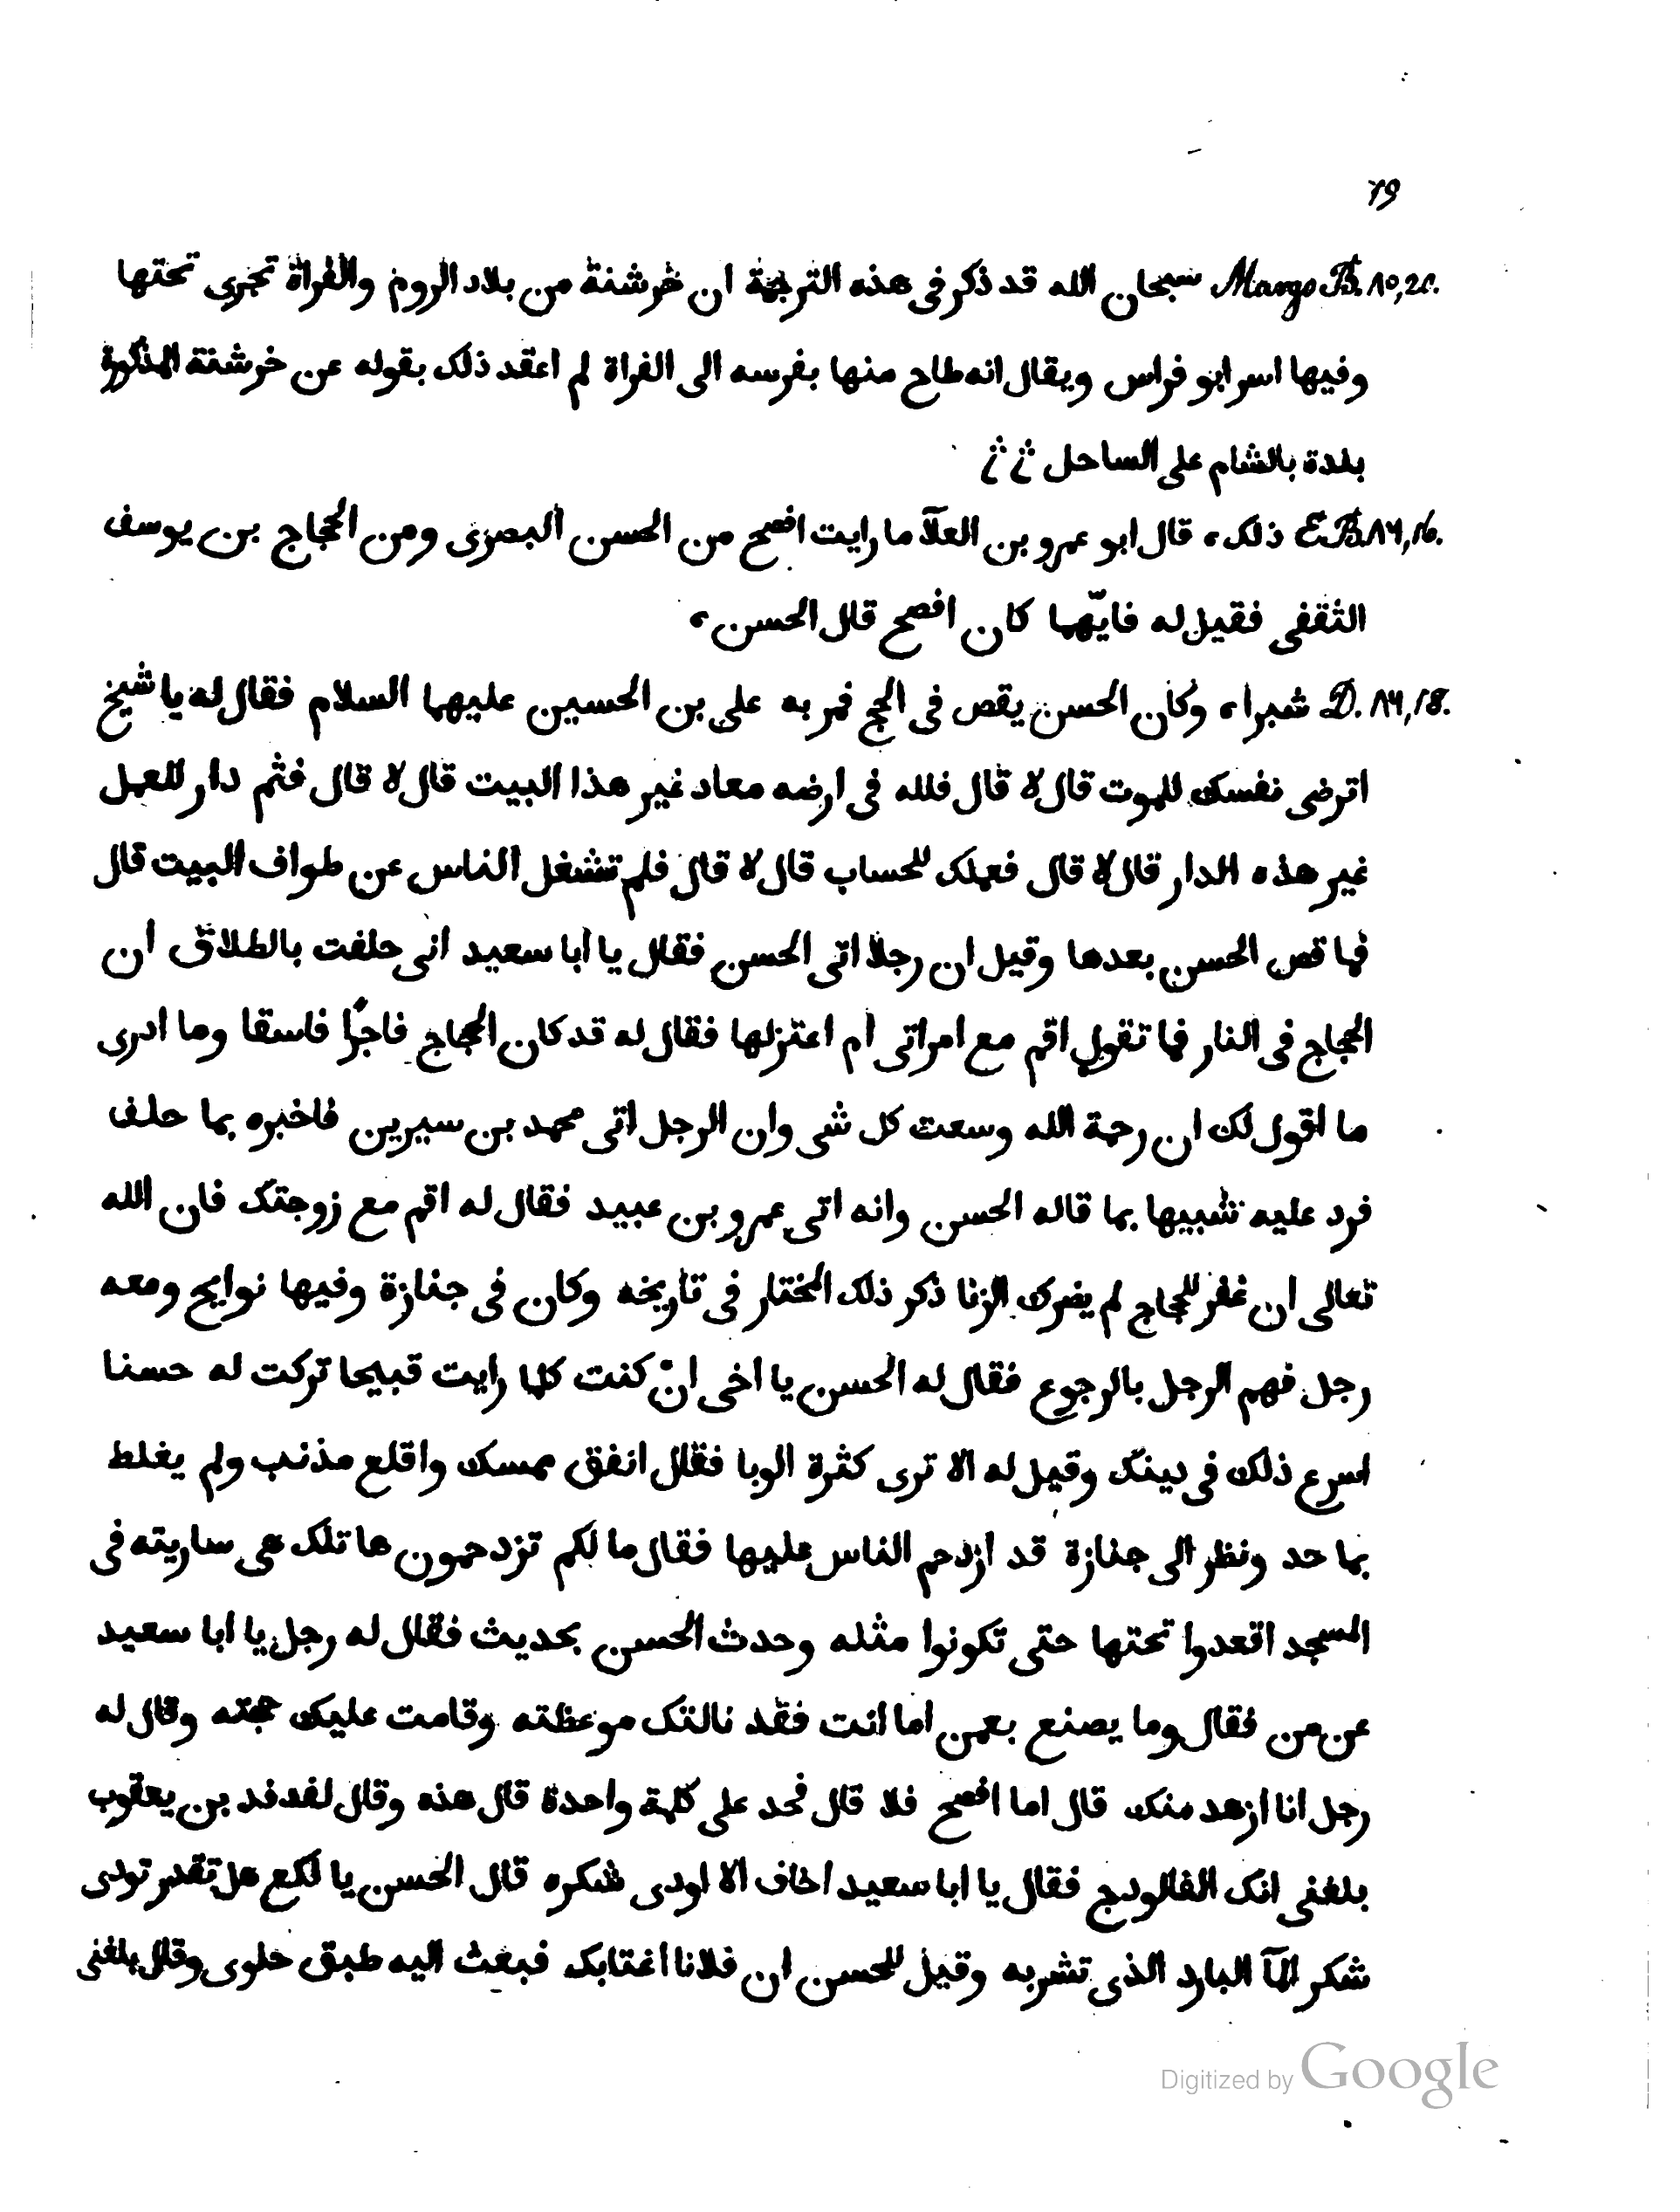 19
Margo B. ٨٥, 20. سبحان الله قد ذكر فى هذه الترجمة ان خرشنة من بلاد الروم والفراة تجرى تحتها
وفيها اسر ابو فراس ويقال انه طاح منها بفرسه الى الفراة لم اعقد ذلك بقوله عن خرشنة المذكورة
بلدة بالشام على الساحل
E B. ٨٩, 16. ذلك، قال ابو عمرو بن العلآ ما رايت افصح من الحسن البصرى ومن الحجاج بن يوسف
الثقفى فقيل له فايّهما كان افصح قال الحسن،
D. ٨٩, 18. شبرا، وكان الحسن يقص فى الحج فمر به على بن الحسين عليهما السلام فقال له يا شيخ
اترضى نفسك للموت قال لا قال فلله فى ارضه معاد غير هذا البيت قال لا قال فثم دار للعمل
غير هذه الدار قال لا قال فعملك للحساب قال لا قال فلم تشغل الناس عن طواف البيت قال
فما قص الحسن بعدها وقيل ان رجلا اتى الحسن فقال يا ابا سعيد انى حلفت بالطلاق ان
الحجاج فى النار فما تقول اقم مع امراتى ام اعتزلها فقال له قد كان الحجاج فاجرًا فاسقا وما ادرى
ما اقول لك ان رحمة الله وسعت كل شى وان الرجل اتى محمد بن سيرين فاخبره بما حلف
فرد عليه شبيها بما قاله الحسن وانه اتى عمرو بن عبيد فقال له اقم مع زوجتك فان الله
تعالى ان غفر للحجاج لم يضرك الزنا ذكر ذلك المختار فى تاريخه وكان فى جنازة وفيها نوايح ومعه
رجل فهم الرجل بالرجوع فقال له الحسن يا اخى انْ كنت كلما رايت قبيحا تركت له حسنا
اسرع ذلك فى دينك وقيل له الا ترى كثرة الوبا فقال انفق ممسك واقلع مذنب ولم يغلط
بما حد ونظر الى جنازة قد ازدحم الناس عليها فقال ما لكم تزدحمون ها تلك هى ساريته فى
المسجد اقعدوا تحتها حتى تكونوا مثله وحدث الحسن بحديث فقال له رجل يا ابا سعيد
عن من فقال وما يصنع بعمن اما انت فقد نالتك موعظته وقامت عليك حجته وقال له
رجل انا ازهد منك قال اما افصح فلا قال فحد على كلمة واحدة قال هذه وقال لفدفد بن يعقوب
بلغنى انك الفالودج فقال يا ابا سعيد اخاف الا اودى شكره قال الحسن يا لكع هل تقدر تودى
شكر المآ البارد الذى تشربه وقيل للحسن ان فلانا اغتابك فبعث اليه طبق حلوى وقال بلغنى
Digitized by Google